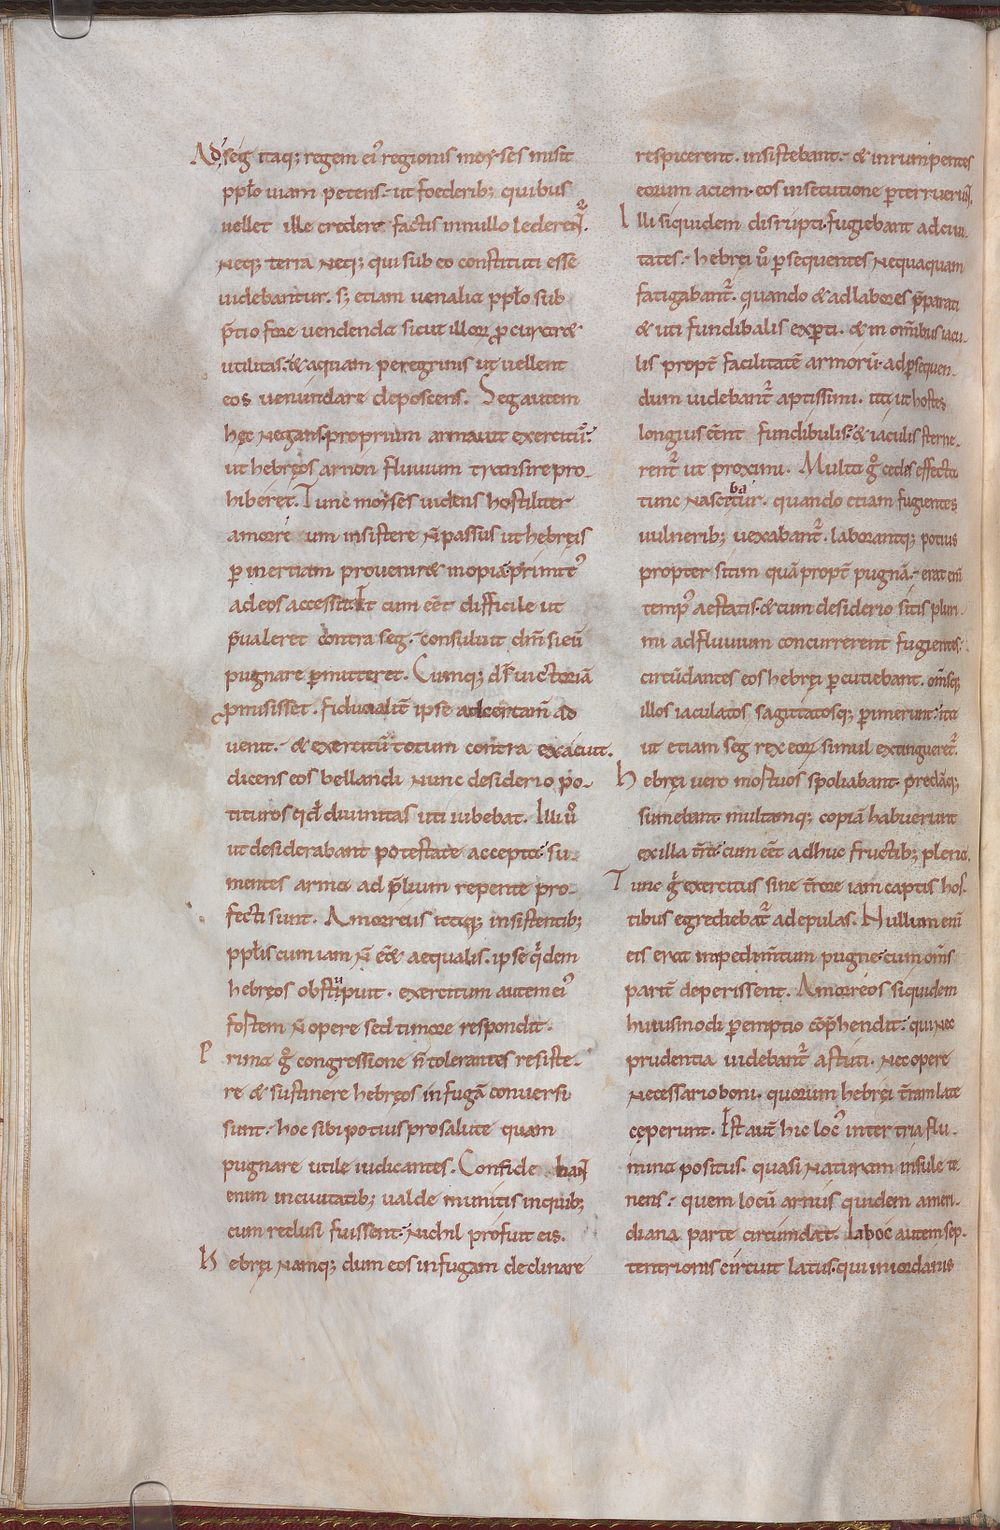 Ad seg itaq; regem ei᾽ regionis moyses misit
pplo uiam petens. ut foederib; quibus
uellet ille credere factis innullo lederet᷑.
Neq; terra Neq; qui sub eo constituti esse
uidebantur. s; etiam uenalia pplo sub
p̄tio fore uendenda sicut illoꝝ ꝓcurar&
utilitas. & aquam peregrinis ut uellent
eos uenundare deposcens. Seg autem
hęc Negans. proprium armauit exercitū.
ut hebręos arnon fluuium transire pro-
hiberet. Tunc moyses uidens hostiliter
amorreum insistere n̄ passus ut hebręis
ꝑ inertiam prouenir& inopia.
adeos accessit. Et cum eēt difficile ut
p̄ualeret contra seg. consuluit dm̄ si eū
pugnare ꝑmitteret. Cumq; ds̄ uictoriā
ꝓmisisset. fiducialit̄ ipse adcertam̄ ad
uenit. & exercitū totum contra exacuit.
dicens eos bellandi Nunc desiderio po-
tituros qd̄ diuinitas uti iubebat. Illi u᷑o
ut desiderabant potestate accepta. su-
mentes arma ad p̄lium repente pro-
fecti sunt. Amorreus itaq; insistentib;
pplis cum iam n̄ eēt aequalis. ipse qͥdem
hebręos obstipuit. exercitum autem ei᾽
fostem n̄ opere sed timore respondit.
Prima gͦ congressione n̄ tolerantes resiste-
re & sustinere hebręos in fugā conuersi
sunt. hoc sibi potius pro salute quam
pugnare utile iudicantes. Confide ban̄t
enim in ciuitatib; ualde munitis inquib;
cum reclusi fuissent. Nichil profuit eis.
Hebręi Namq; dum eos in fugam declinare
respicerent. insistebant. & inrumpentes
eorum aciem. eos insecutione ꝑterruerun̄t.
Illi siquidem disrupti. fugiebant adciui-
tates. hebręi u᷑o ꝑsequentes Nequaquam
fatigabant᷑. quando & ad labores p̄parati
& uti fundibalis exꝑti. & in om̄ibus iacu-
lis propt̄ facilitatē armorū. ad ꝑsequen-
dum uidebant᷑ aptissimi. ita ut hostes
longius eēnt fundibulis. & iaculis sterne-
rent᷑ ut proximi. Multa gͦ cedes effecta
tunc Nascebatur. quando etiam fugientes
uulnerib; uexabant᷑. laborantq; potius
propter sitim quā propt̄ pugnā. erat eni̅
temp᾽ aestatis. & cum desiderio sitis pluri-
mi ad fluuium concurrerent fugientes.
circūdantes eos hebręi ꝑcutiebant. om̄esq;
illos iaculatos sagittatosq; ꝑimerunt. ita
ut etiam seg rex eoꝝ simul extingueret᷑.
Hebręi uero mostuos spoliabant. predāq;
sumebant multamq; copiā habuerunt
ex illa t̄ra. cum eēt adhuc fructib; plena.
Tunc gͦ exercitus sine t̄rore iam captis hos-
tibus egrediebat᷑ ad epulas. Nullum eni̅
eis erat impedim̄tum pugne. cum om̄s
parit̄ deperissent. Amorreos siquidem
huiusmodi ꝑemptio cōp̄hendit. qui Nec
prudentia uidebant᷑ astuti. Nec opere
Necessario boni. quorum hebręi t̄ram late
ceperunt. Est aut̄ hic loc᾽ inter tria flu-
mina positus. quasi Naturam insule te
nens. quem locū arnus quidem ameri-
diana parte circumdat. Iaboc autem sep-
tentrionis circuit latus. qui in iordanis